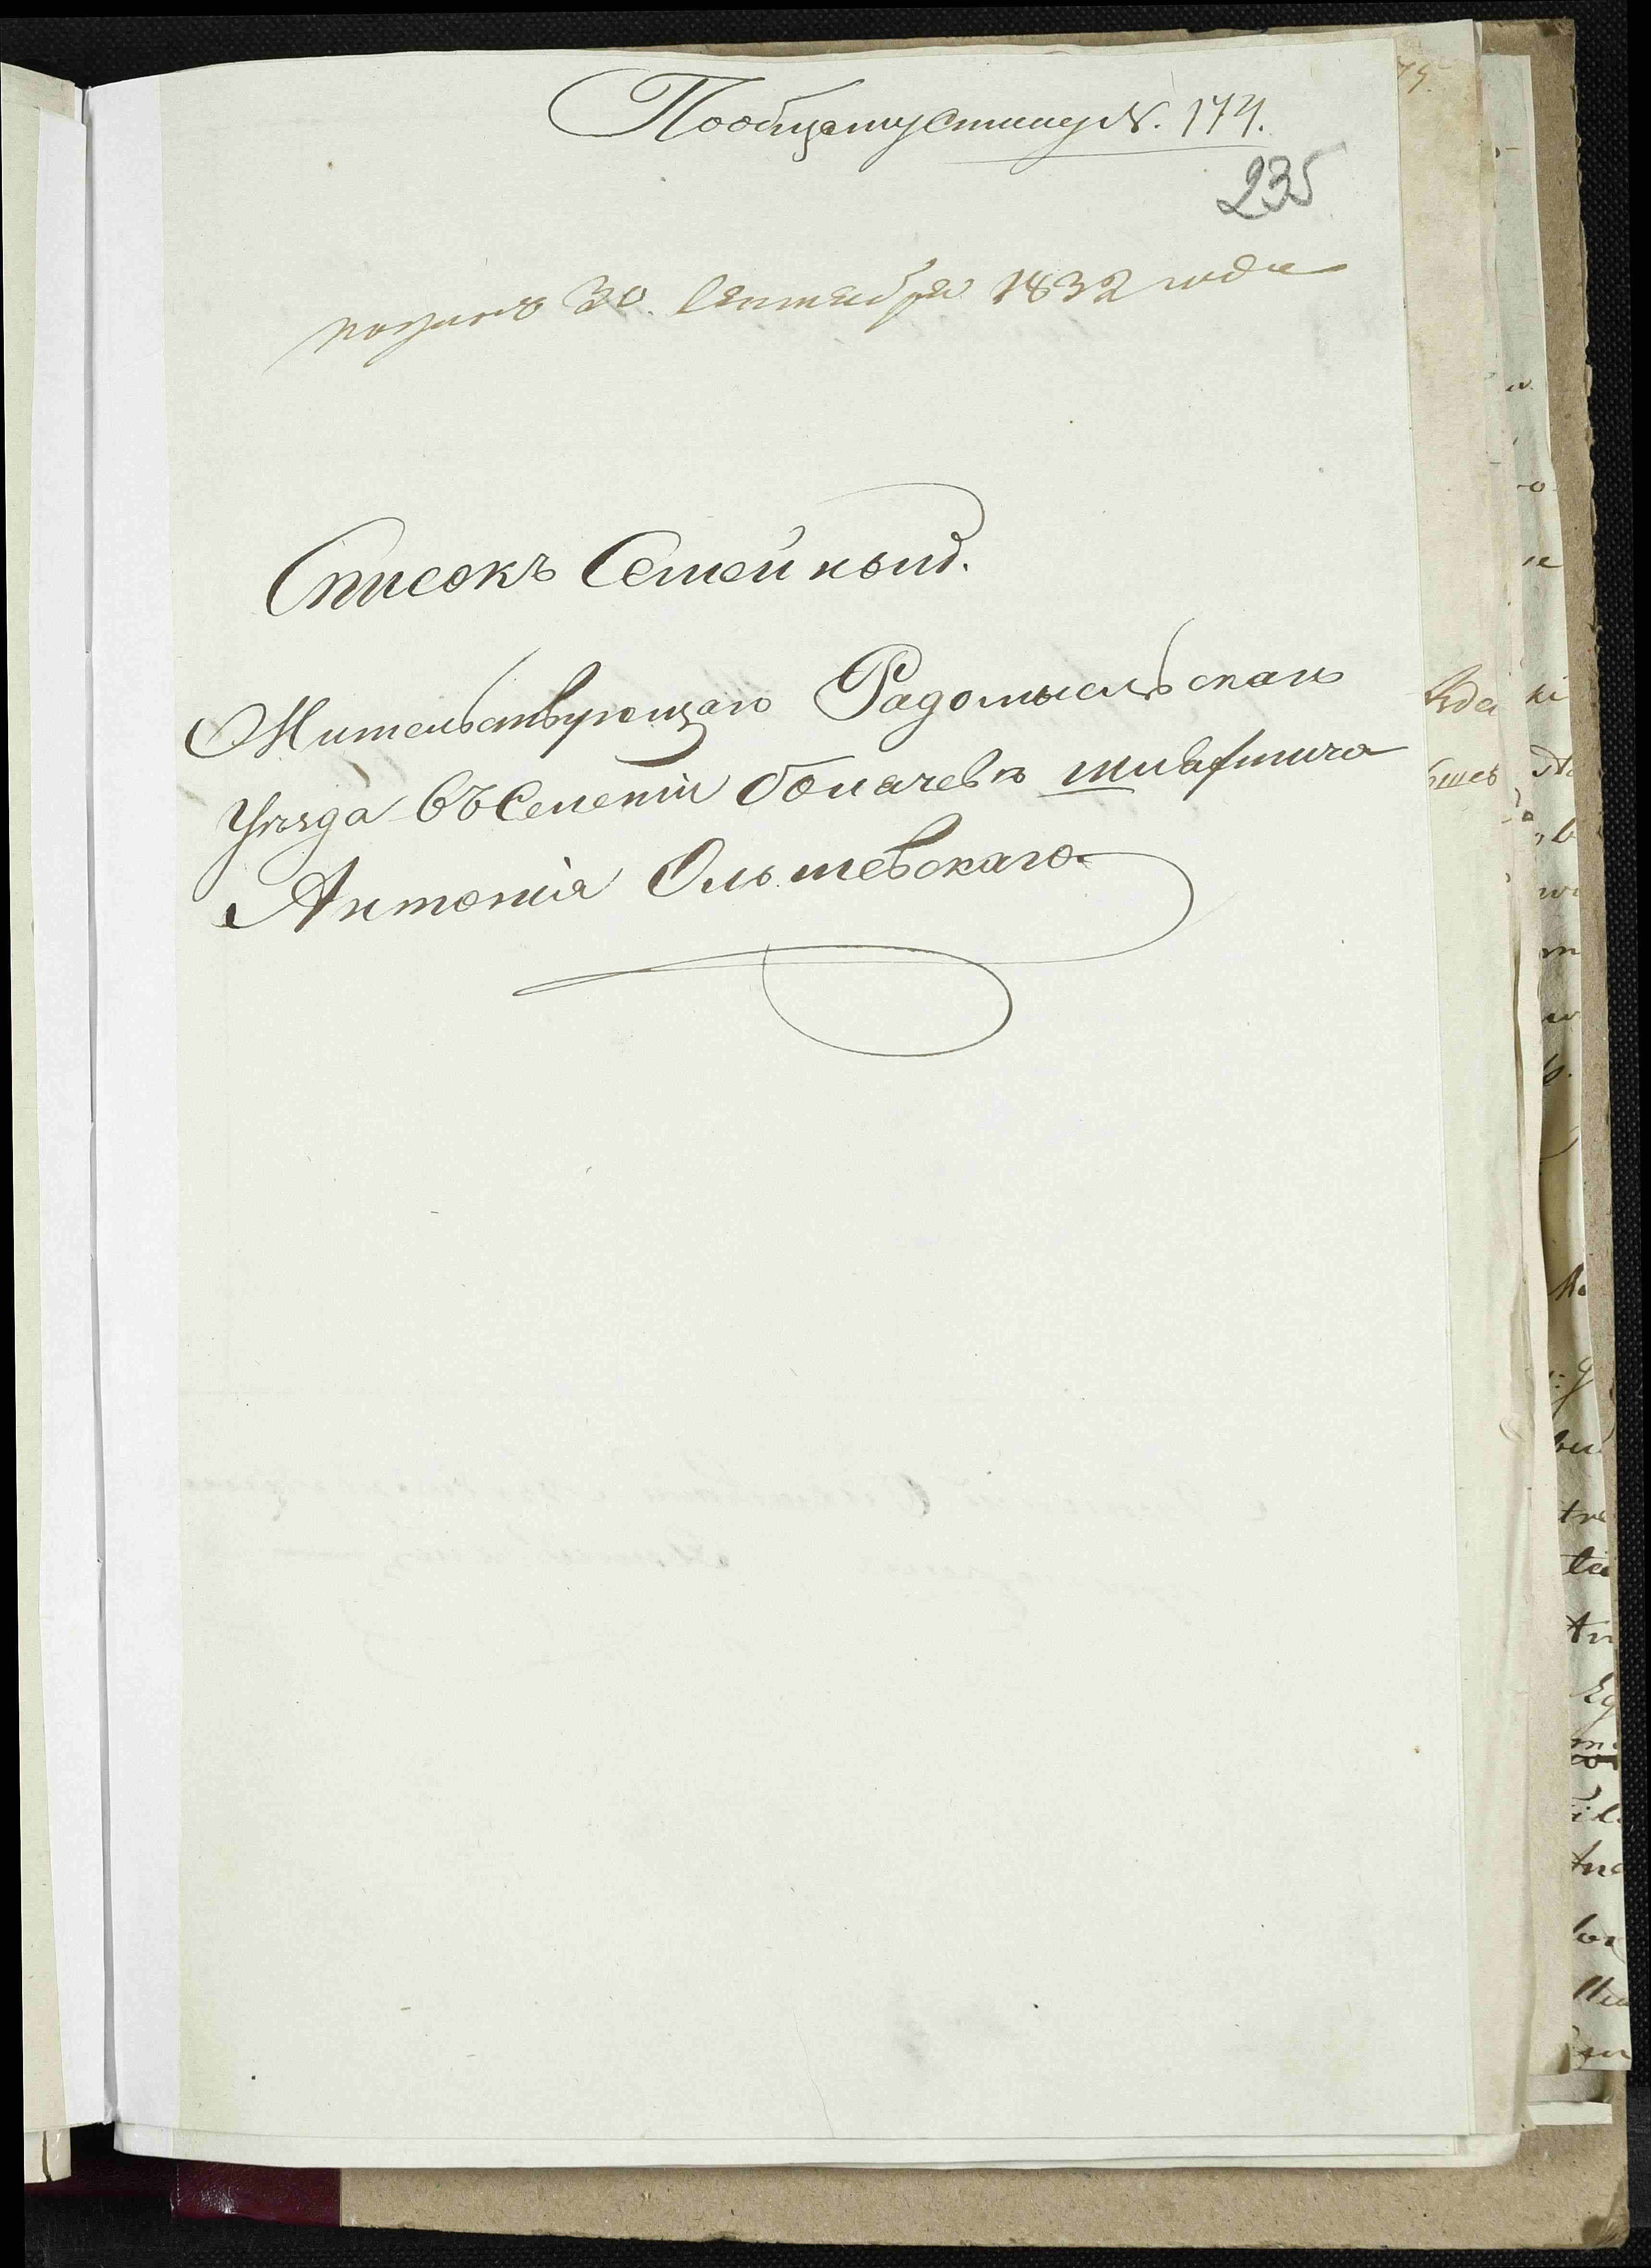 Пообщему Списку N. 174.
235
получено 30. Сентября 1832 года
Списокъ Семейный.
Жительствующаго Радомысльскаго
Уѣзда въ Селеніи шляхтича
Антонія Ольшевскаго